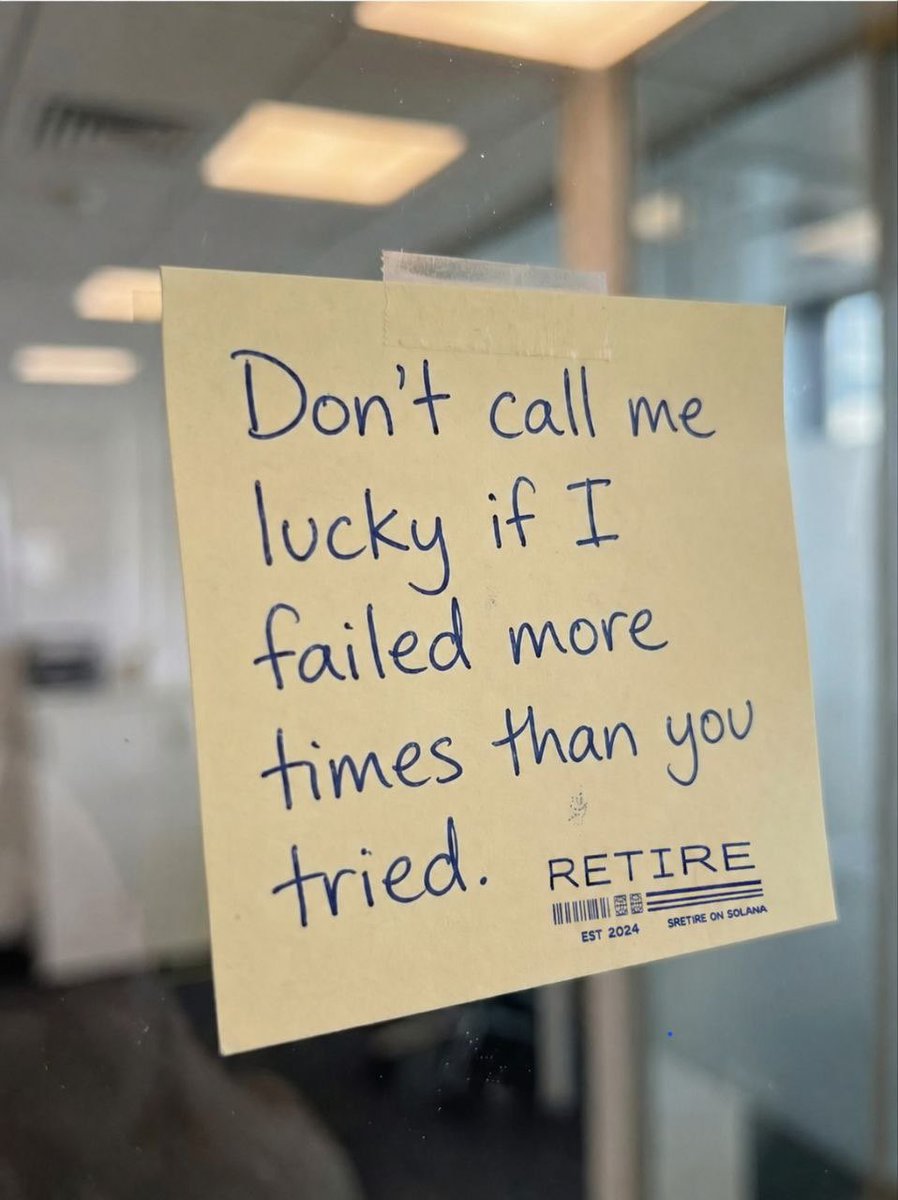 Don't call me
lucky if I
failed more
times than you
tried.
RETIRE
EST 2024
SRETIRE ON SOLANA